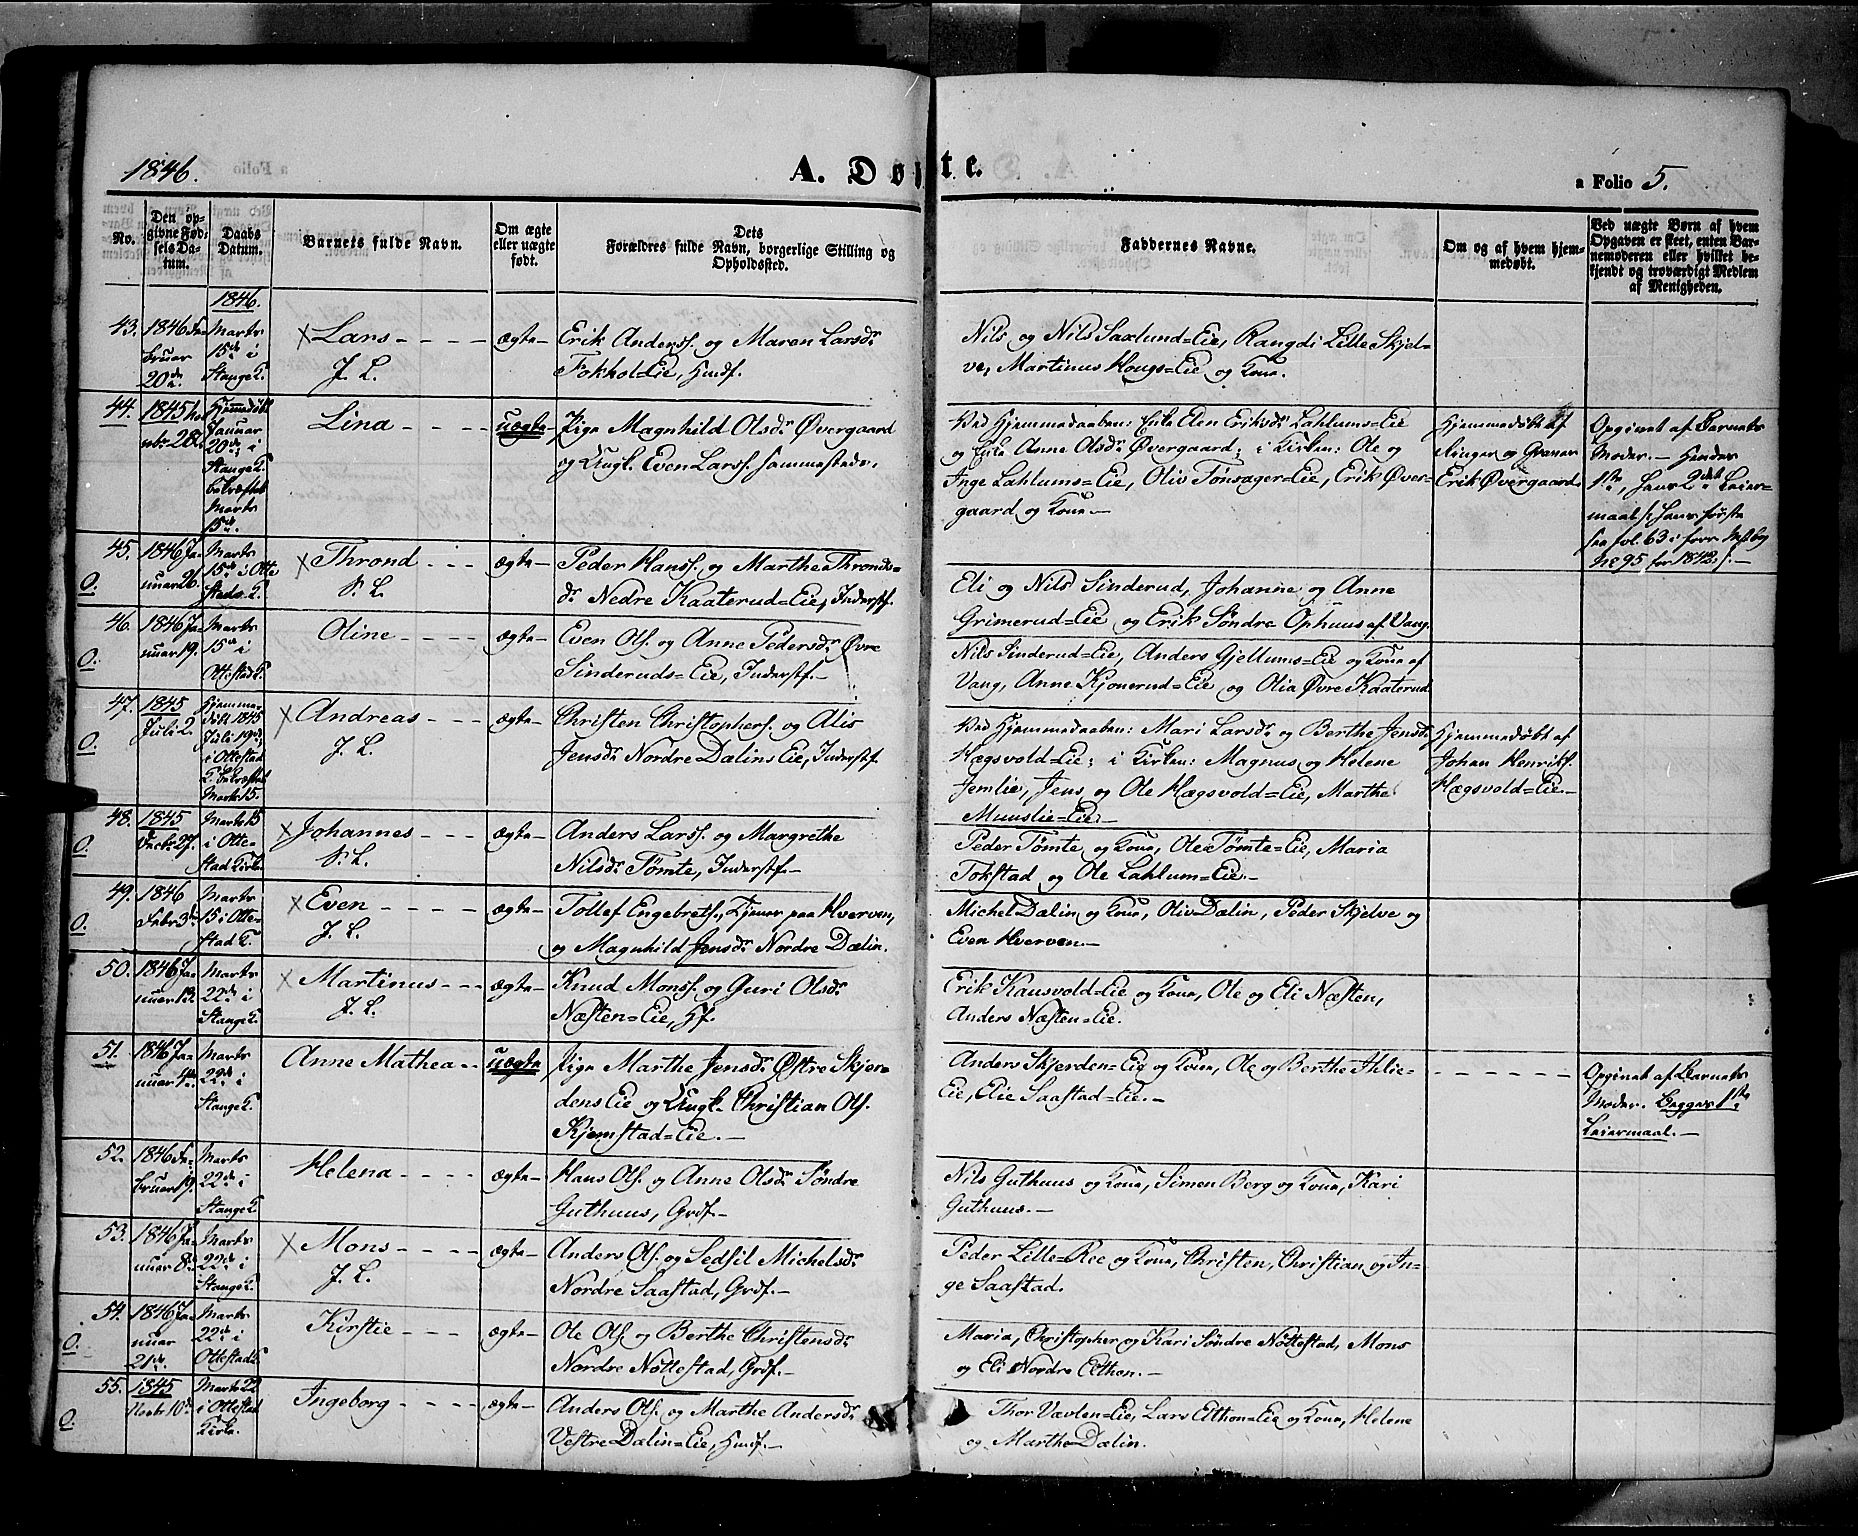 1846.
A. Døbte.
a Folio 5.
No.
Den op-
givne Fød-
sels Da-
tum.
Daabs
Datum.
Barnets fulde Navn.
Om ægte
eller uægte
født.
Dets
Forældres fulde Navn, borgerlige Stilling og
Opholdssted.
Faddernes Navne.
Om og af hvem hjem-
medøbt.
Ved uægte Børn af hvem
Opgaven er skeet, enten Bar-
nemoderen eller hvilket be-
kjendt og troværdigt Medlem
af Menigheden.
1846.
43.
1846 Fe-
bruar
20de
Marts
15de i
Stange K.
X Lars
J. L.
ægte
Erik Anderss. og Maren Larsdr
Fokhol=Eie, Husf.
Nils og Nils Saxlund=Eie, Rangdi Lille Skjel-
ve, Martinus Hougs=Eie og Kone.
44.
1845
28.
Hjemmedøbt
Januar
20de i
Stange K.
bekræftet
Marts
15de
Lina
uægte
Pige Magnhild Olsdr Øvergaard
og Ungk. Even Larss. sammesteds.
Ved Hjemmedaaben: Enke Elen Eriksdr Lahlums=Eie
og Enke Anne Olsdr Øvergaard; i Kirken: Ole og
Inge Lahlums=Eie, Oliv Tønsager=Eie, Erik Øver-
gaard og Kone.
Hjemmedøbt af
og
Erik Øvergaard.
Opgivet af Barnets
Moder. — Hendes
1ste, hans 2det Leier-
maal /: hans første
see fol. 63 i forr.
No 95 for 1842. :/ —
45.
O.
1846 Ja-
nuar 26.
Marts
15de i Otte
stads K.
X Thrond
P. L.
ægte
Peder Hanss. og Marthe Thronds-
dr Nedre Kaaterud=Eie, Inderstf.
Eli og Nils Sinderud, Johanne og Anne
Grimerud=Eie og Erik Søndre Ophuus af Vang.
46.
O.
1846 Ja-
nuar 19.
Marts
15de i
Ottestad K.
Oline
ægte
Even Ols. og Anne Pedersdr Øvre
Sinderuds=Eie, Inderstf.
Nils Sinderud=Eie, Anders Gjellums=Eie og Kone af
Vang, Anne Kjonerud=Eie og Olia Øvre Kaaterud
47.
O.
1845
Juli 2.
Hjemme-
døbt 1845
Juli 19de
i Ottestad
K. bekræftet
Marts 15.
X Andreas
J. L.
ægte
Christen Christophers. og Alis
Jensdr Nordre Dalins Eie, Inderstf.
Ved Hjemmedaaben: Mari Larsdr og Berthe Jensdr
Hægsvold=Eie; i Kirken: Magnus og Helene
Jemlie, Jens og Ole Hægsvold=Eie, Marthe
Muuslie=Eie.
Hjemmedøbt af
Johan Henriks.
Hægsvold=Eie.
48.
O.
1845
Decbr 27.
Marts 15
i Otte-
stad Kirke
X Johannes
P. L.
ægte
Anders Larss. og Margrethe
Nilsdr Tømte, Inderstf.
Peder Tømte og Kone, Ole Tømte=Eie, Maria
Tokstad og Ole Lahlum=Eie.
49.
O.
1846
Febr 3
Marts
15 i Otte-
stad K.
X Even
J. L.
ægte
Tollef Engebrets., Tjener paa Hverven,
og Magnhild Jensdr Nordre Dælin.
Michel Dælin og Kone, Oliv Dælin, Peder Skjelve og
Even Hverven.
50.
1846 Ja-
nuar 13.
Marts
22de i
Stange K.
X Martinus
J. L.
ægte
Knud Monss. og Guri Olsdr
Næsten=Eie, Hf.
Erik Kausvold=Eie og Kone, Ole og Eli Næsten,
Anders Næsten=Eie.
51.
1846 Ja-
nuar 4de
Marts
22de i
Stange K.
Anne Mathea
uægte
Pige Marthe Jensdr Østre Skjer-
dens Eie og Ungk. Christian Ols.
Kjemstad=Eie.
Anders Skjerden=Eie og Kone, Ole og Berthe Ihlie-
Eie, Elie Saastad=Eie.
Opgivet af Barnets
Moder. Begges 1ste
Leiermaal.
52.
1846 Fe-
bruar 19.
Marts
22de i
Stange K.
Helena
ægte
Hans Ols. og Anne Olsdr Søndre
Guthuus, Grdf.
Nils Guthuus og Kone, Simen Berg og Kone, Kari
Guthuus.
53.
1846 Ja-
nuar 8de
Marts
22de i
Stange K.
X Mons
J. L.
ægte
Anders Ols. og Sedsil Michelsdr
Nordre Saastad, Grdf.
Peder Lille=Ree og Kone, Christen, Christian og In-
ge Saastad.
54.
O.
1846 Ja-
nuar
21de
Marts
22de i
Ottestad K.
Kirstie
ægte
Ole Ols. og Berthe Christensdr
Nordre Nøttestad, Grdf.
Maria, Christopher og Kari Søndre Nøttestad, Mons
og Eli Nordre Elthon.
55.
O.
1845
Novbr 10de
Marts 22
i Ottestad
Kirke
Ingeborg
ægte
Anders Ols. og Marthe Andersdr
Vestre Dælin=Eie, Husf.
Thor Vævlen=Eie, Lars Elthon=Eie og Kone, Helene
og Marthe Dælin.